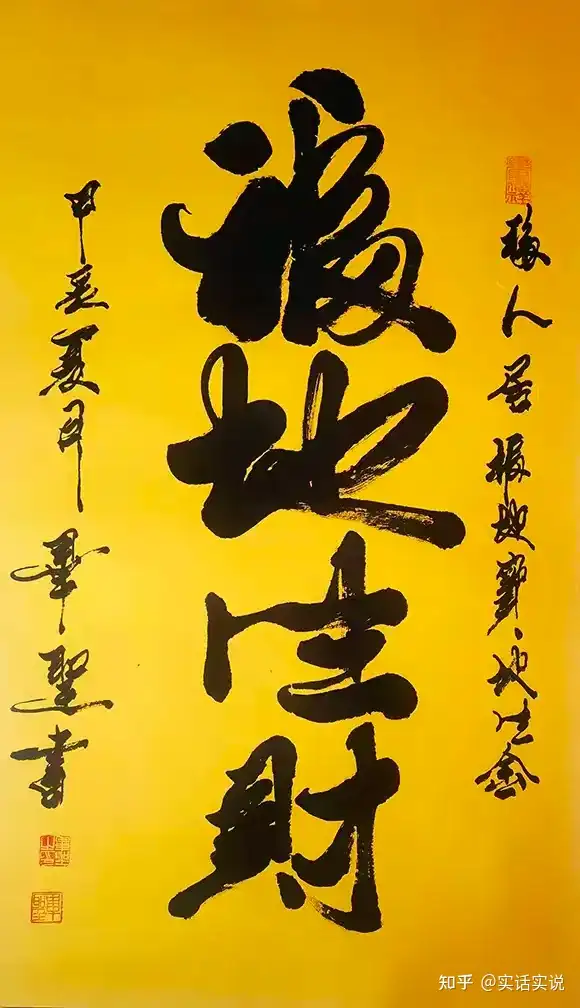 福人居福地寶地生金
福地生財
甲辰夏月聖書
知乎 @实话实说